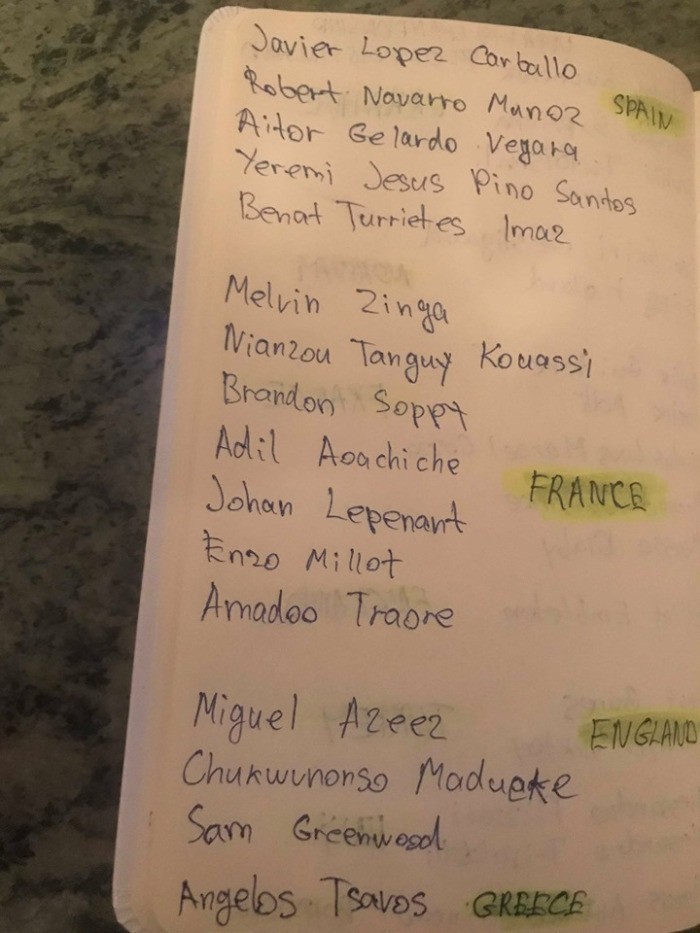 Javier Lopez Carballo
Robert Navarro Munoz SPAIN
Aitor Gelardo Vegara
Yeremi Jesus Pino Santos
Benat Turrietes Imaz
Melvin Zinga
Nianzou Tanguy Kouassi
Brandon Soppy
Adil Aoachiche
Johan Lepenant FRANCE
Enzo Millot
Amadoo Traore
Miguel Azeez ENGLAND
Chukwunonso Madueke
Sam Greenwood
Angelos Tsavos GREECE